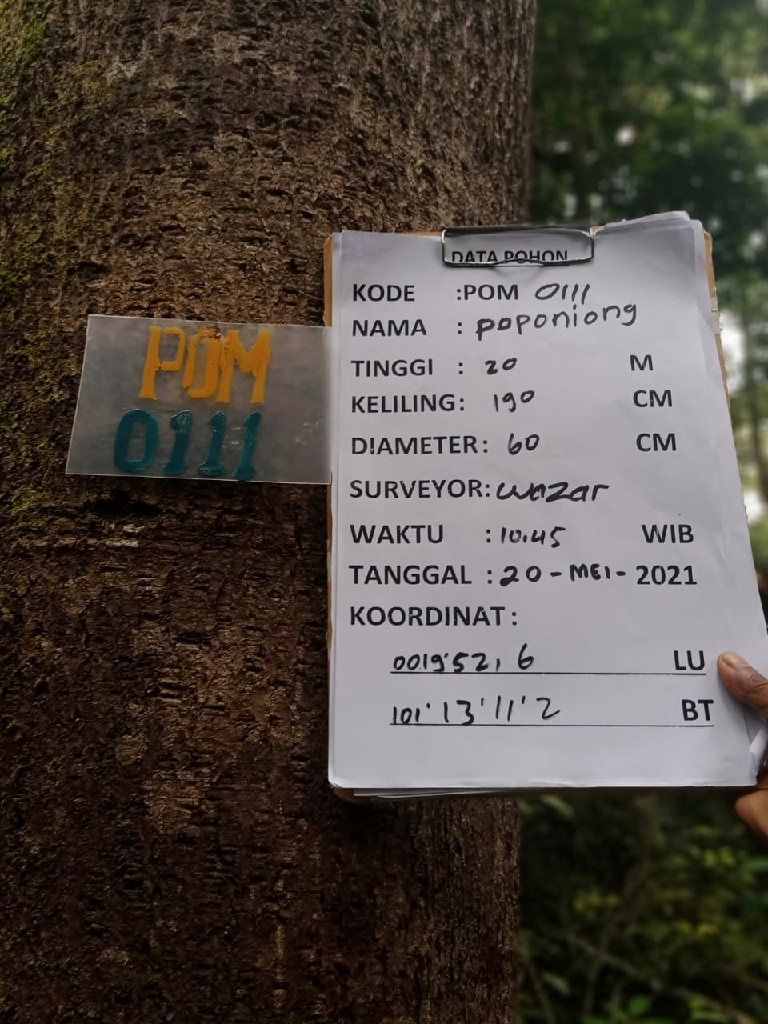 POM
0111
DATA POHON
KODE :POM 0111
NAMA : poponiong
TINGGI : 20 M
KELILING: 190 CM
DIAMETER: 60 CM
SURVEYOR: wazar
WAKTU : 10.45 WIB
TANGGAL : 20 - MEI - 2021
KOORDINAT :
0019'52, 6 LU
101'13'11'2 BT